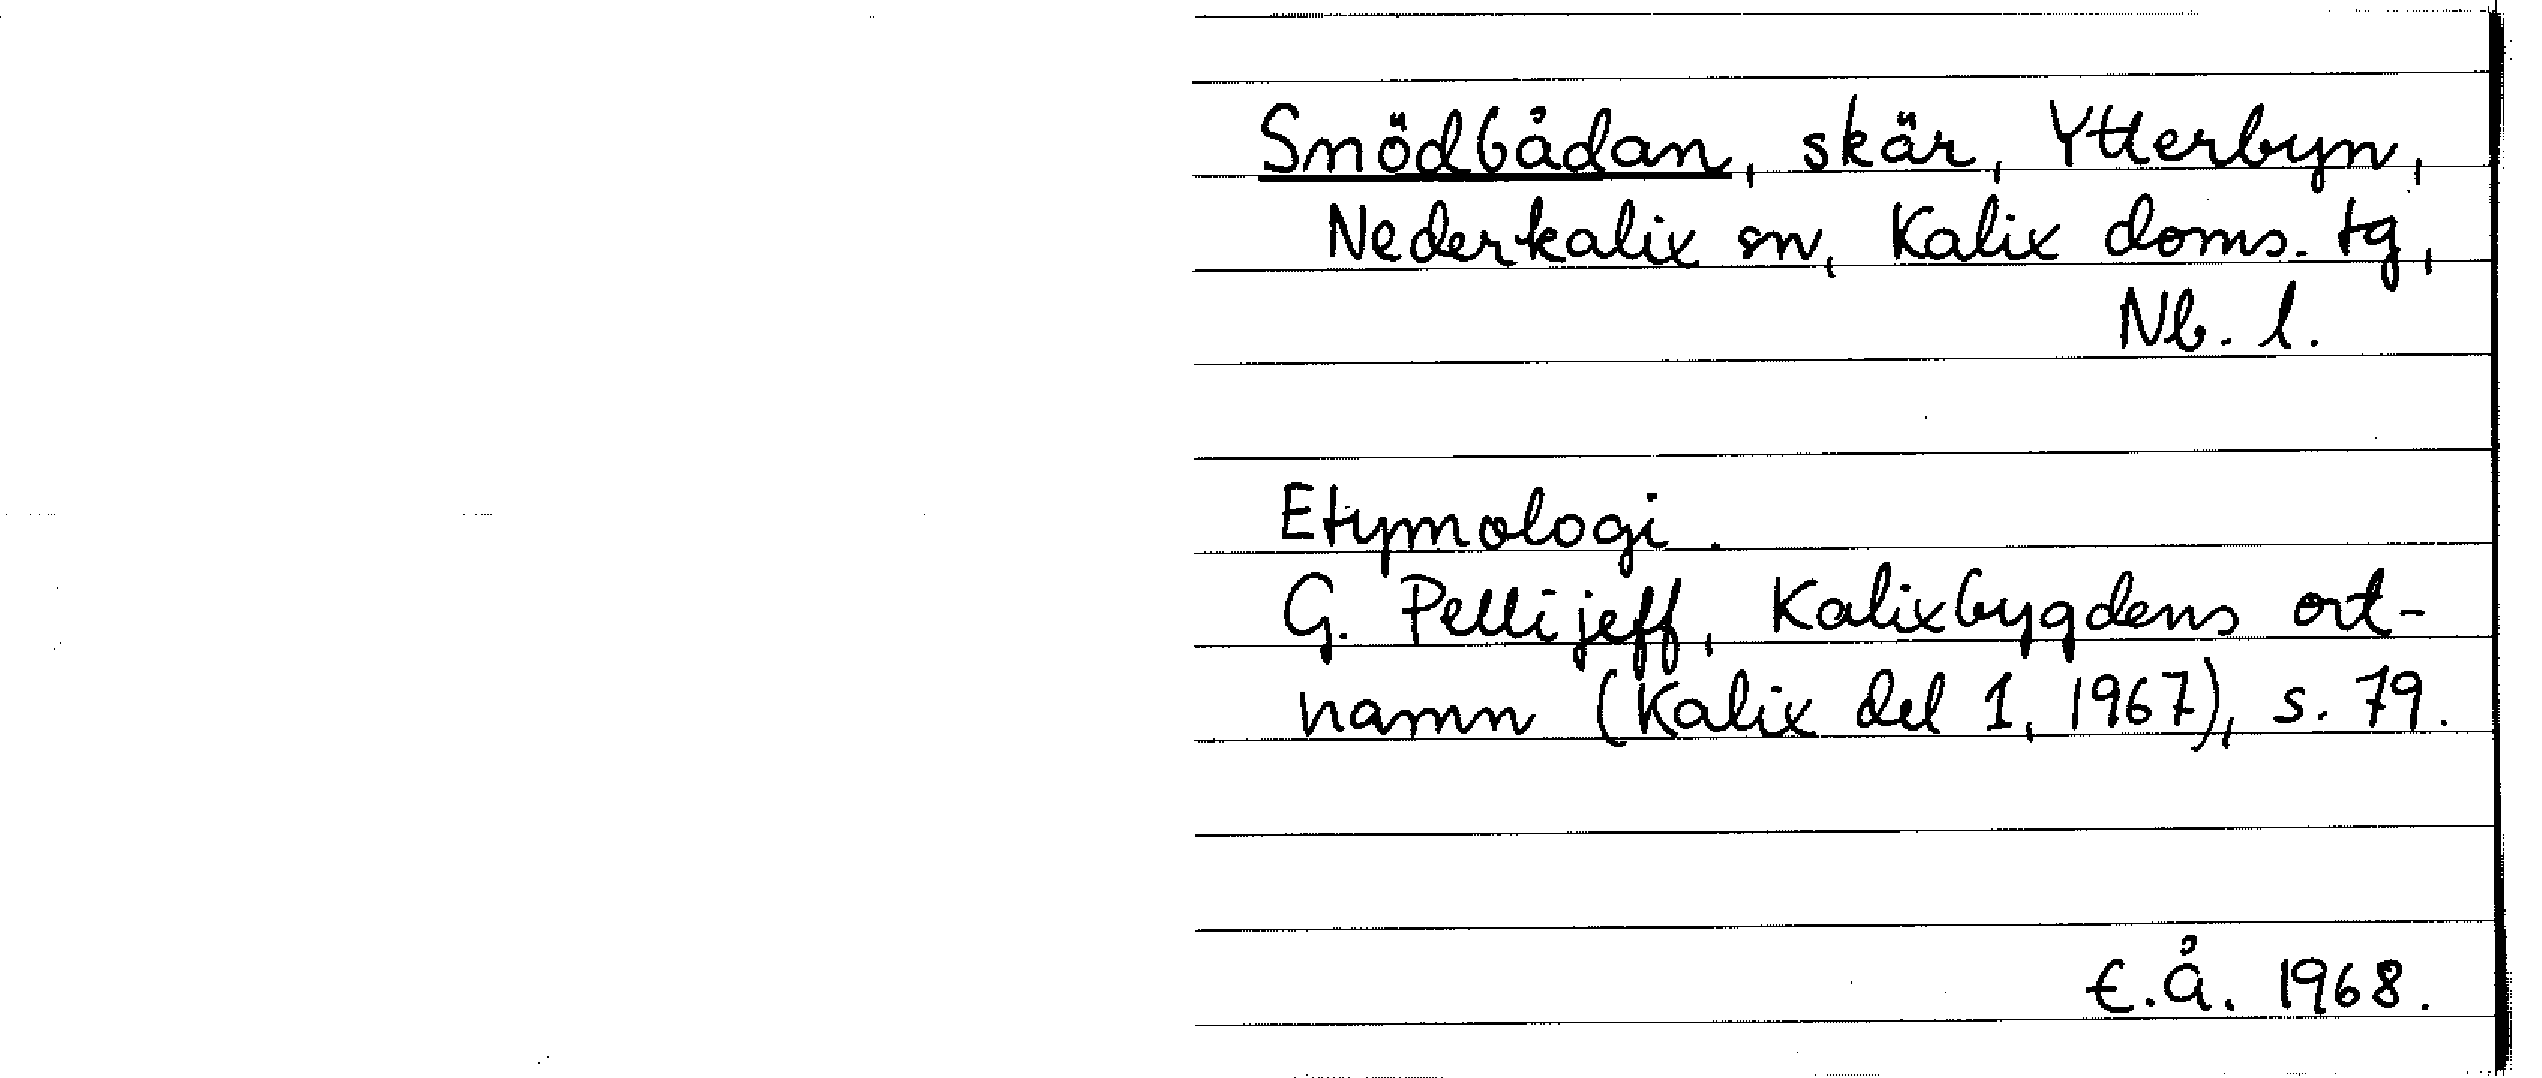 Snödbådan, skär, Ytterbyn,
Nederkalix sn, Kalix doms. tg,
Nb. l.
Etymologi.
G. Pellijeff, Kalixbygdens ort-
namn (Kalix del 1, 1967), s. 79.
E.Å. 1968.